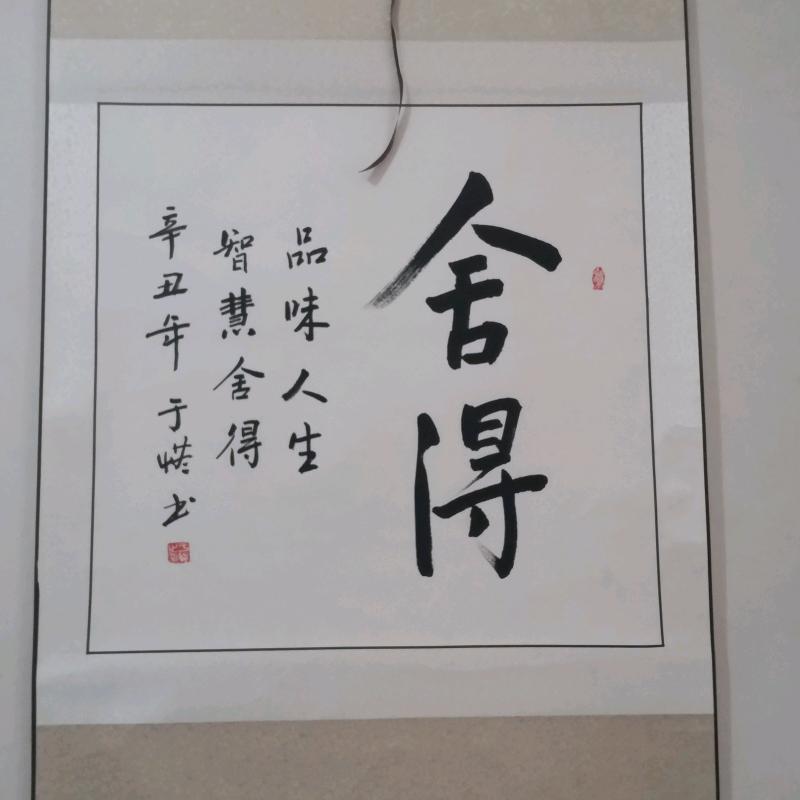 舍得
品味人生
智慧舍得
辛丑年 于 书